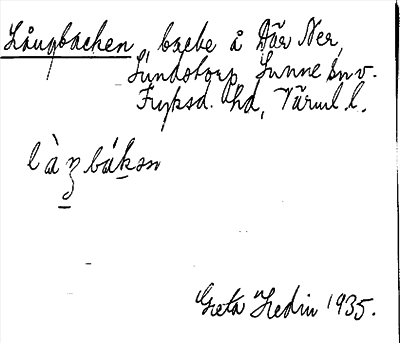 Långbacken backe å Där Ner,
Sundstorp Sunne sn v.
Fryksd. hd, Värml l.
Greta Hedin 1935.